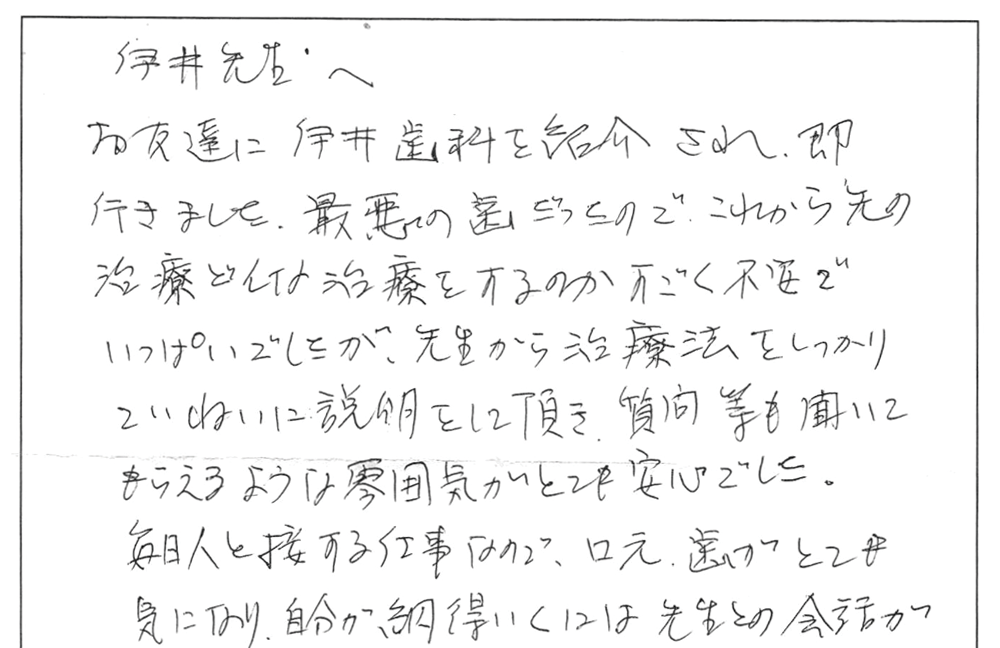 伊井先生へ
お友達に伊井歯科を紹介され、即
行きました、最悪の歯だったので、これから先の
治療どんな治療をするのかすごく不安で
いっぱいでしたが、先生から治療法をしっかり
ていねいに説明をして頂き、質問等も聞いて
もらえるような雰囲気がとても安心でした。
毎日人と接する仕事なので、口元、歯がとても
気になり、自分が納得いくには先生との会話が